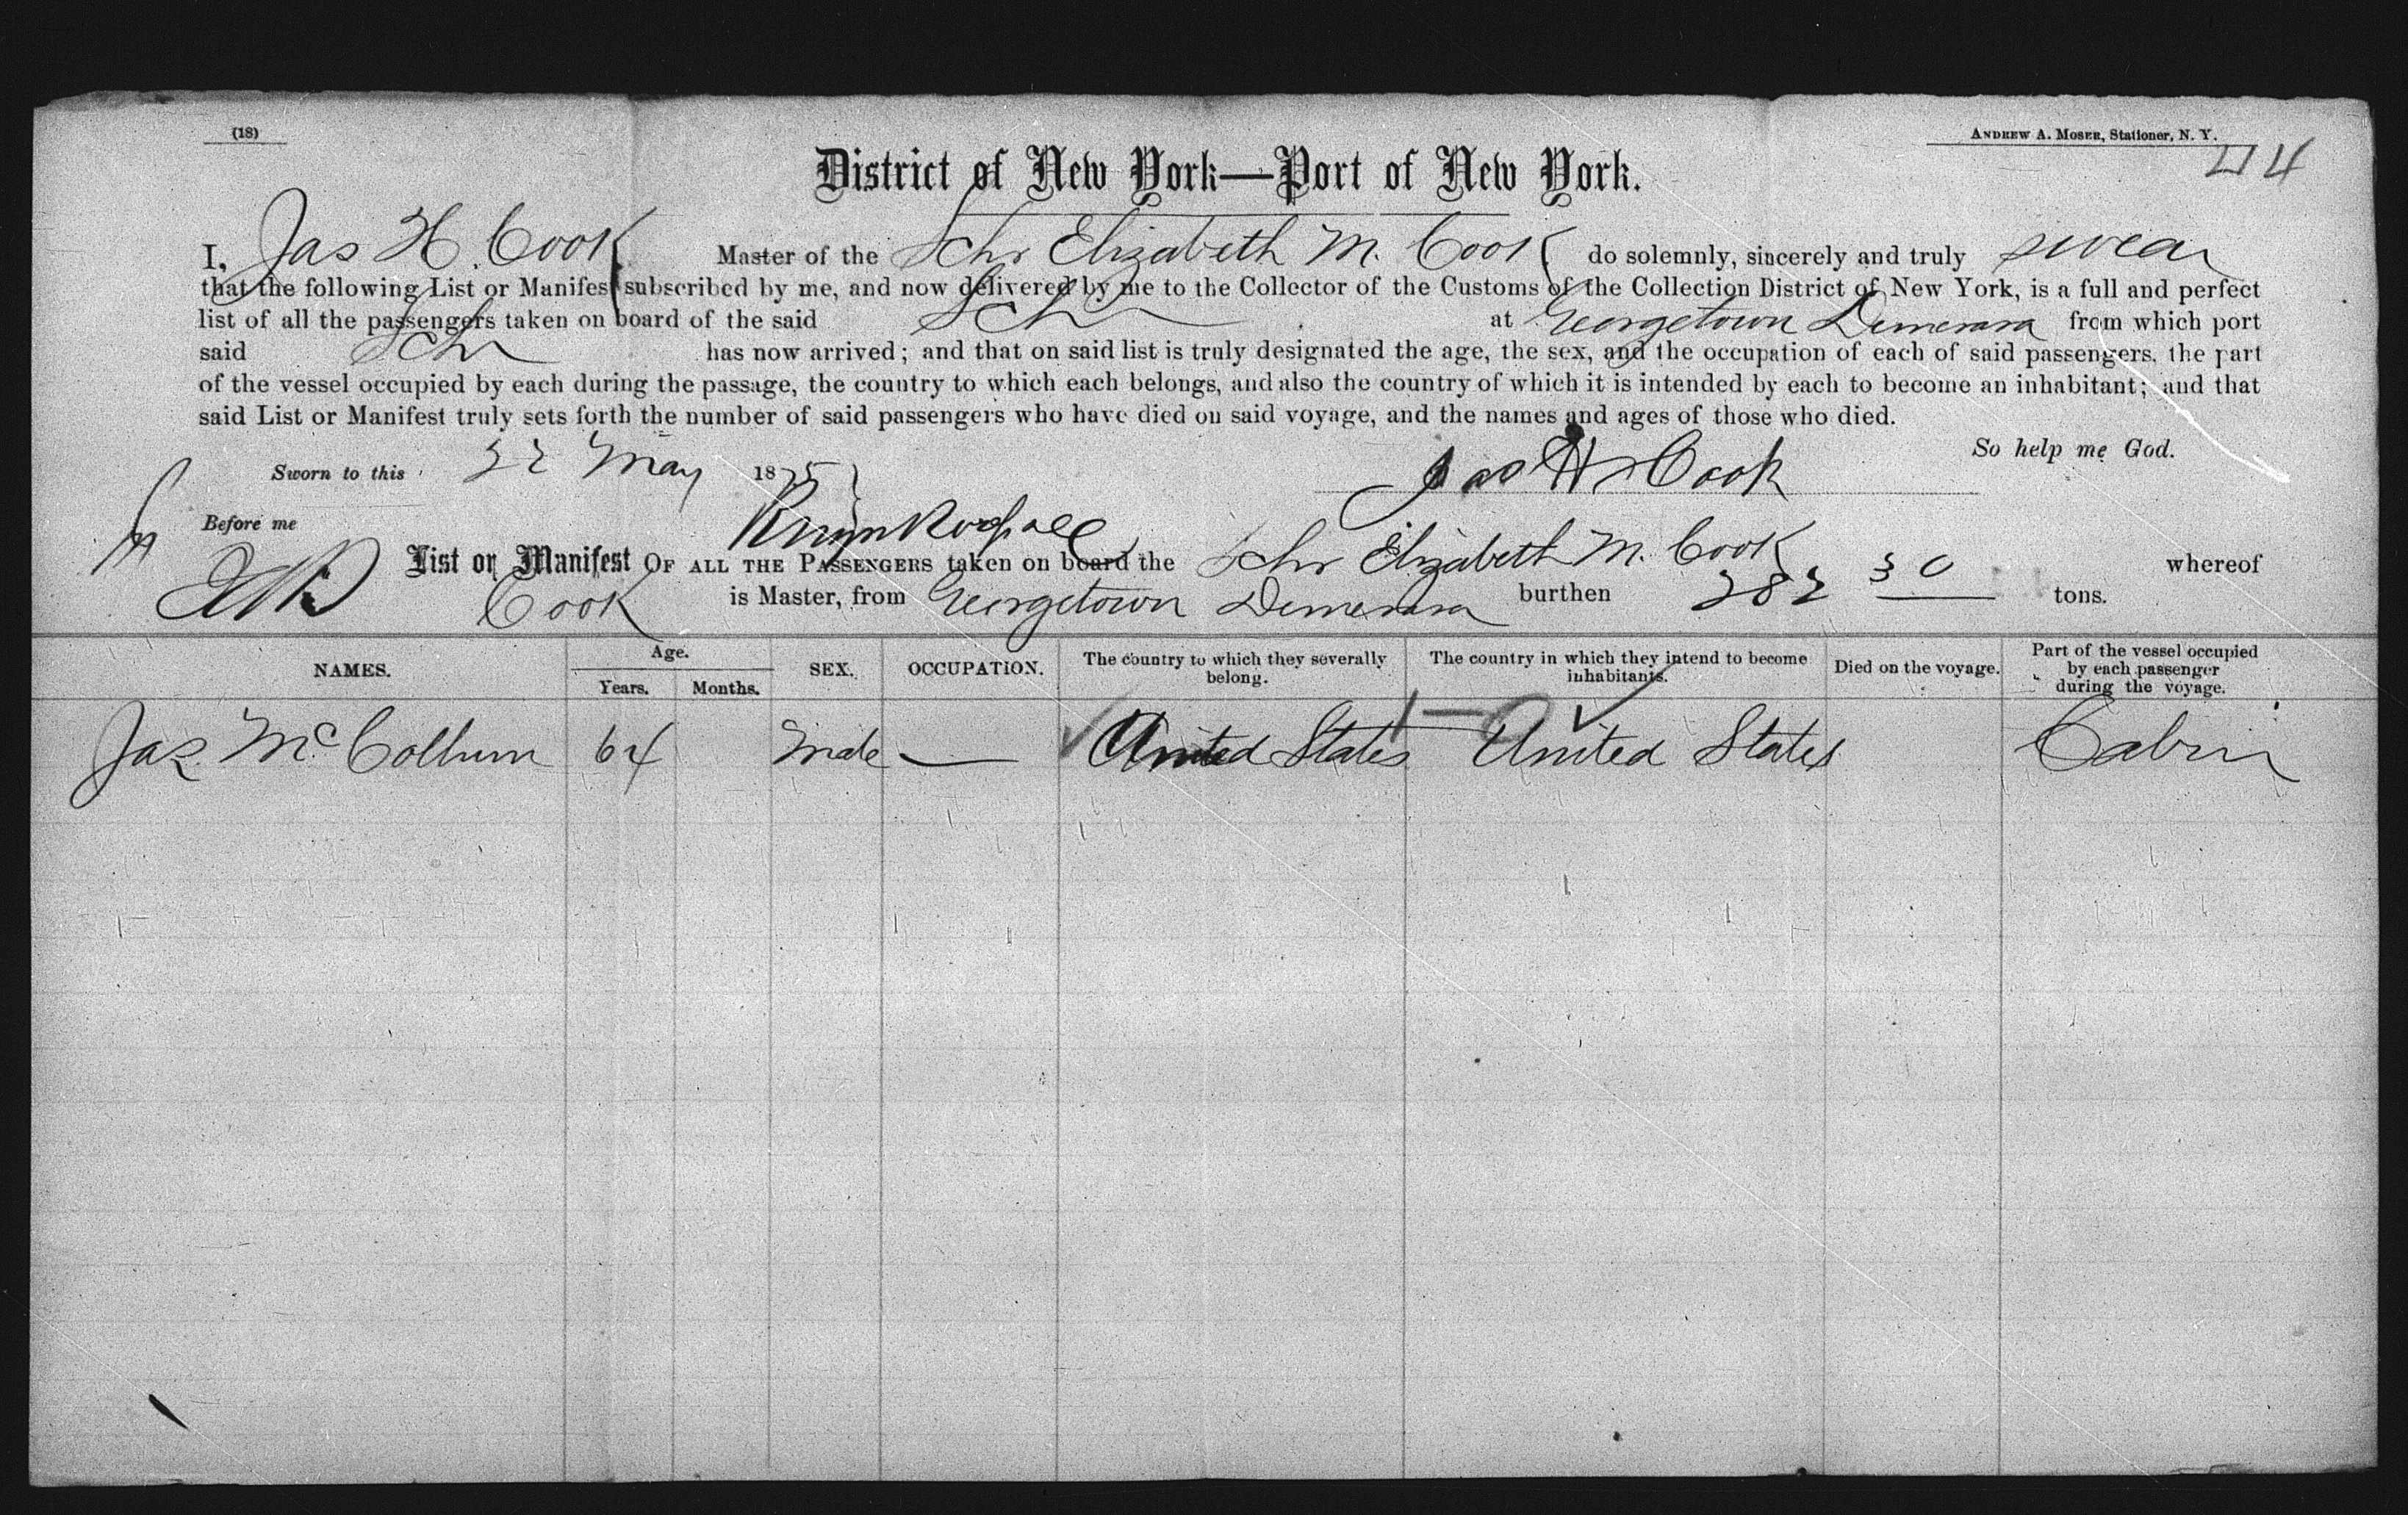 (18)
ANDREW A. MOSER, Stationer, N. Y.
44
District of New York—Port of New York.
I, Jas H. Cook Master of the Schr Elizabeth M. Cook do solemnly, sincerely and truly swear
that the following List or Manifest subscribed by me, and now delivered by me to the Collector of the Customs of the Collection District of New York, is a full and perfect
list of all the passengers taken on board of the said Schr at Georgetown Demerara from which port
said Schr has now arrived; and that on said list is truly designated the age, the sex, and the occupation of each of said passengers, the part
of the vessel occupied by each during the passage, the country to which each belongs, and also the country of which it is intended by each to become an inhabitant; and that
said List or Manifest truly sets forth the number of said passengers who have died on said voyage, and the names and ages of those who died.
So help me God.
Sworn to this 22 May 1875 Jas H Cook
Before me
List or Manifest OF ALL THE PASSENGERS taken on board the Schr Elizabeth M. Cook whereof
Cook is Master, from Georgetown Demerara burthen 382 30 tons.
NAMES. Age. Years. Months. SEX. OCCUPATION. The country to which they severally belong. The country in which they intend to become inhabitants. Died on the voyage. Part of the vessel occupied by each passenger during the voyage.
Jas. McCollum 64 Male — United States United States Cabin